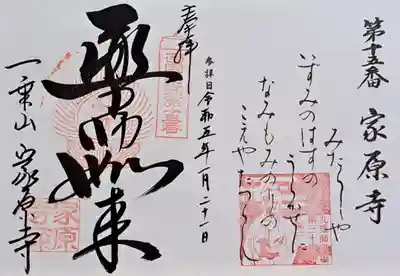 第十五番 家原寺
みたらしや
いずみのはすの
なみもみのりの
こえやたつらし
奉拝
参拝日令和五年一月二十一日
薬師如来
一乗山 家原寺